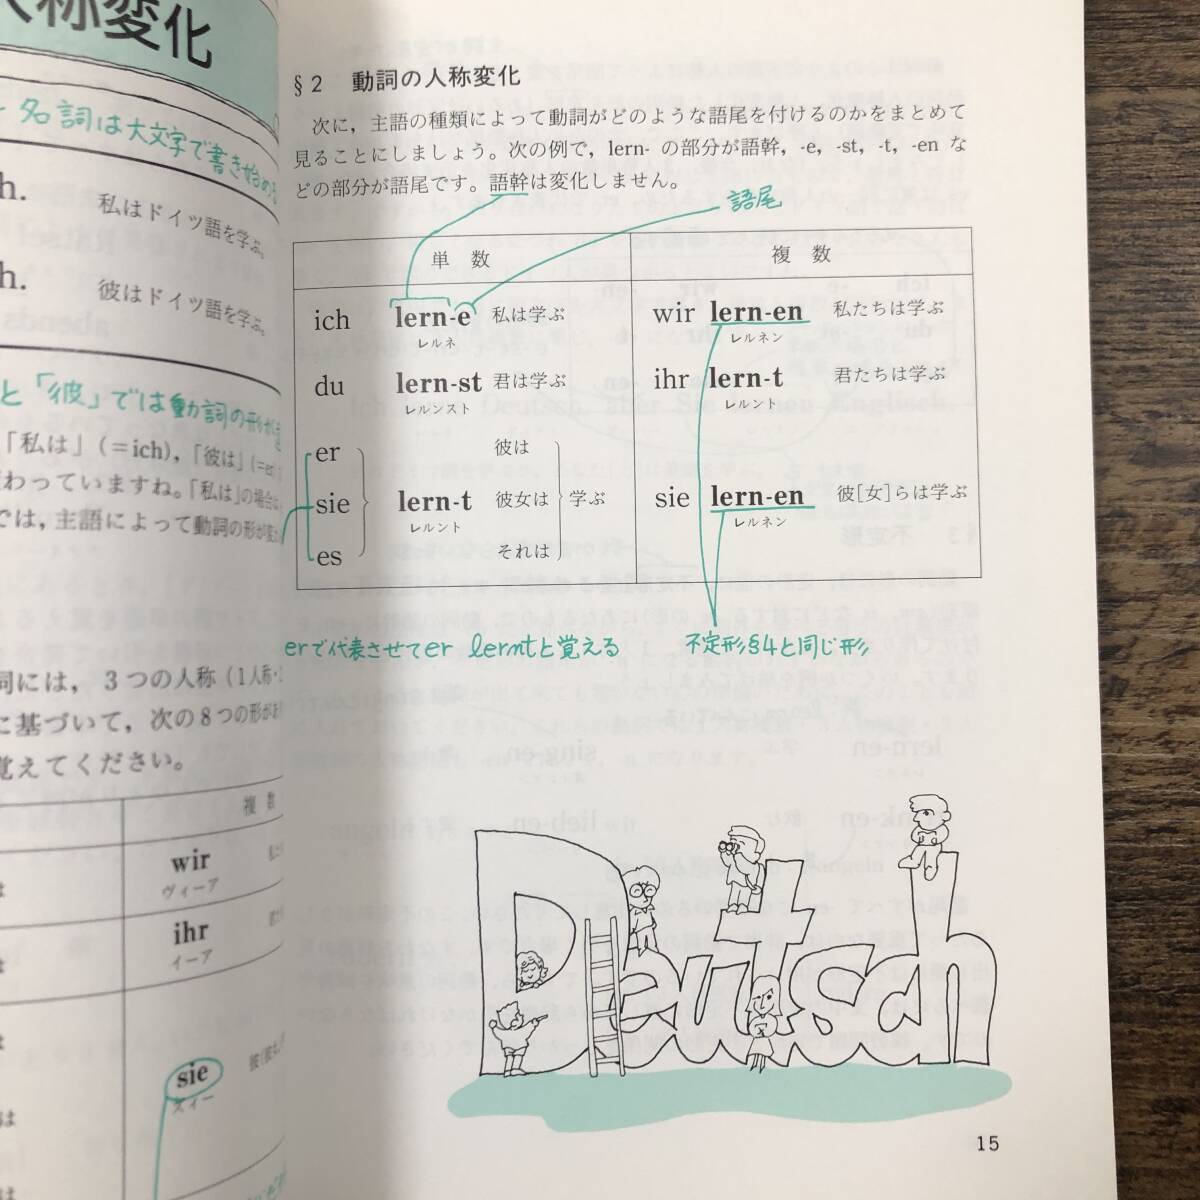 人称変化
名詞は大文字で書き始める
h.
私はドイツ語を学ぶ。
h.
彼はドイツ語を学ぶ。
と「彼」では動詞の形が
「私は」(=ich),「彼は」(=er)
わっていますね。「私は」の場合
では,主語によって動詞の形が変わ
詞には, 3つの人称(1人称・
に基づいて,次の8つの形があ
覚えてください。
複 数
wir
ヴィーア
ihr
イーア
sie
ズィー
§2 動詞の人称変化
次に,主語の種類によって動詞がどのような語尾を付けるのかをまとめて
見ることにしましょう。次の例で,lern- の部分が語幹,-e, -st, -t, -en な
どの部分が語尾です。語幹は変化しません。
語尾
単 数 複 数
ich lern-e 私は学ぶ wir lern-en 私たちは学ぶ
レルネ レルネン
du lern-st 君は学ぶ ihr lern-t 君たちは学ぶ
レルンスト レルント
er 彼は
sie lern-t 彼女は 学ぶ sie lern-en 彼[女]らは学ぶ
レルント レルネン
es それは
erで代表させてer lerntと覚える 不定形§4と同じ形
Deutsch
15